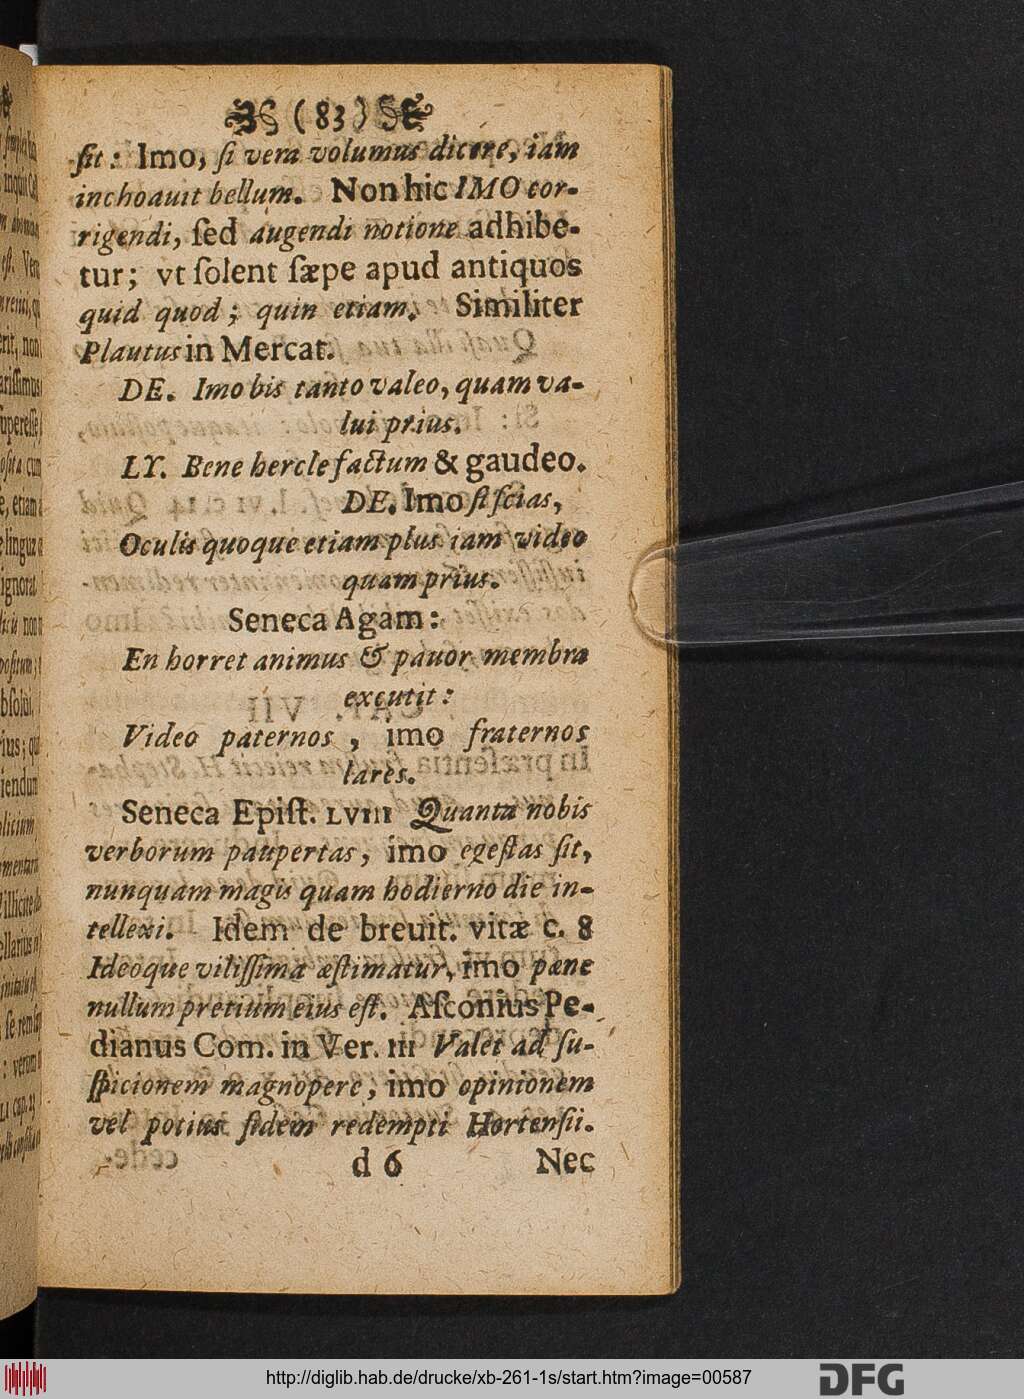 (83)
ſit: Imo, ſi vera volumus dicere, iam
inchoauit bellum. Non hic IMO cor-
rigendi, ſed augendi notione adhibe-
tur; vt ſolent ſæpe apud antiquos
quid quod; quin etiam. Similiter
Plautus in Mercat.
DE. Imo bis tanto valeo, quam va-
lui prius.
LY. Bene hercle factum & gaudeo.
DE. Imo ſi ſcias,
Oculis quoque etiam plus iam video
quam prius.
Seneca Agam:
En horret animus & pauor membra
excutit:
Video paternos, imo fraternos
lares.
Seneca Epiſt. LVIII Quanta nobis
verborum paupertas, imo egeſtas ſit,
nunquam magis quam hodierno die in-
tellexi. Idem de breuit. vitæ c. 8
Ideoque viliſſima æſtimatur, imo pæne
nullum pretium eius eſt. Aſconius Pe-
dianus Com. in Ver. III Valet ad ſu-
ſpicionem magnopere, imo opinionem
vel potius fidem redempti Hortenſii.
d 6 Nec
http://diglib.hab.de/drucke/xb-261-1s/start.htm?image=00587
DFG